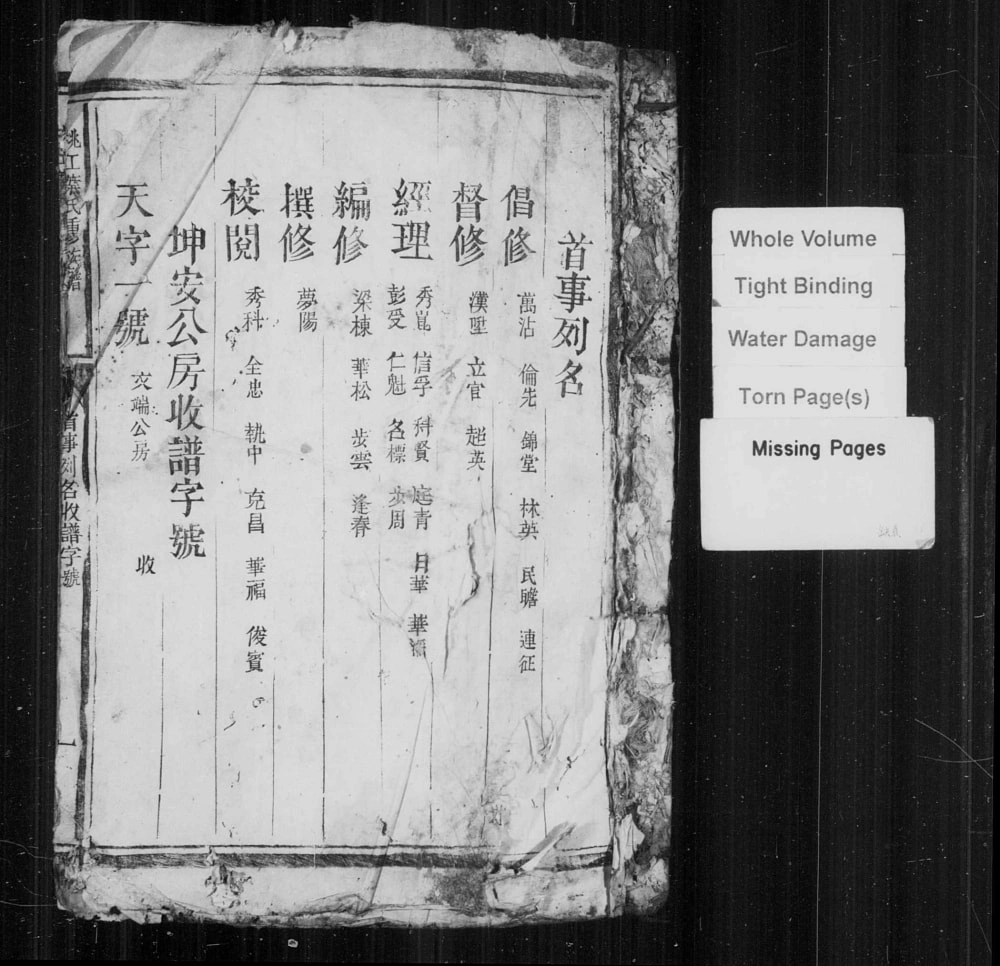 首事列名
倡修 萬沾 倫先 錦堂 林英 民瞻 連征
督修 漢陞 立官 超英
經理 秀崑 信孚 科賢 庭青 日華 華
彭受 仁魁 名標 步周
編修 梁棟 華松 步雲 逢春
撰修 夢陽
校閱 秀科 全忠 執中 克昌 華福 俊賓
坤安公房收譜字號
天字一號 文端公房 收
桃江 氏重修族譜
首事列名收譜字號
一
Whole Volume
Tight Binding
Water Damage
Torn Page(s)
Missing Pages